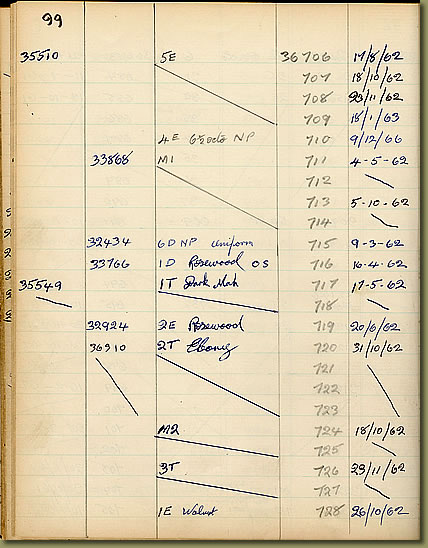 99
35510 5E 36706 17/8/62
707 18/10/62
708 23/11/62
709 18/1/63
4E 6½octs NP 710 9/12/66
33868 M1 711 4-5-62
712
713 5-10-62
714
32434 6D NP Uniform 715 9-3-62
33766 1D Rosewood OS 716 16-4-62
35549 1T Dark Mah 717 17-5-62
718
32924 2E Rosewood 719 20/6/62
36910 2T Ebony 720 31/10/62
721
722
723
M2 724 18/10/62
725
3T 726 23/11/62
727
1E Walnut 728 26/10/62